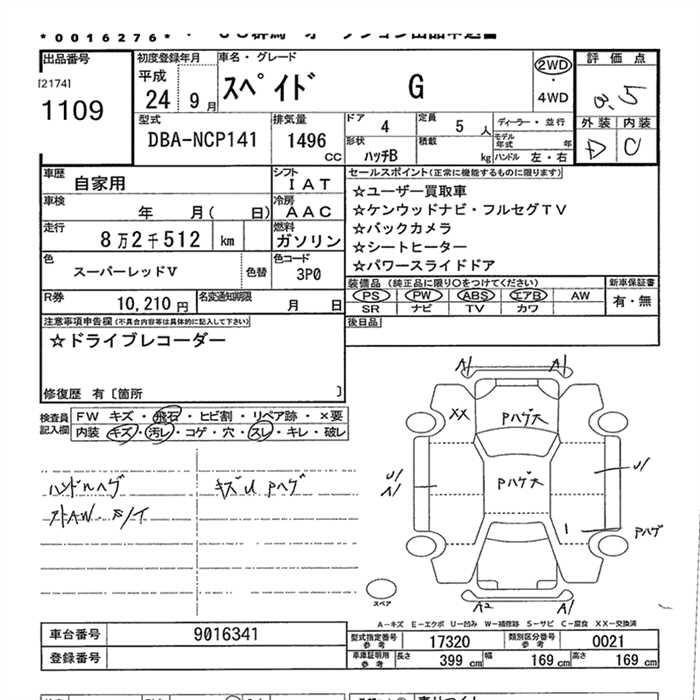 *0016276*
出品番号
[2174]
1109
初度登録年月
平成
24 9月
車名・グレード
スペイド G
2WD
・
4WD
評価点
3.5
外装 内装
D C
型式
DBA-NCP141
排気量
1496
CC
ドア 4
定員 5 人
形状 ハッチB
積載 kg
ディーラー・並行
モデル年式 年
ハンドル 左・右
車歴
自家用
シフト
IAT
車検
年 月( 日)
冷房
AAC
走行
8万2千512 km
燃料
ガソリン
色
スーパーレッドV
色替
色コード
3P0
R券
10,210 円
名変通知期限
月 日
セールスポイント(正常に機能するものに限ります)
☆ユーザー買取車
☆ケンウッドナビ・フルセグTV
☆バックカメラ
☆シートヒーター
☆パワースライドドア
装備品 (純正品に限り○をつけてください)
PS PW ABS エアB AW
SR ナビ TV カワ
新車保証書
有・無
後日品
注意事項申告欄(不具合内容等は具体的に記入して下さい)
☆ドライブレコーダー
修復歴 有〔箇所 〕
検査員記入欄
FW キズ・飛石・ヒビ割・リペア跡・×要
内装 キズ・汚レ・コゲ・穴・スレ・キレ・破レ
ハンドルハゲ
キズU Pハゲ
A1 A1
XX
Pハゲ大
Pハゲ大
U1
A1
U1
1
Pハゲ
A2 A1
スペア
A-キズ E-エクボ U-凹み W-補修跡 S-サビ C-腐食 XX-交換済
車台番号
9016341
登録番号
型式指定番号参考
17320
類別区分番号参考
0021
車庫証明用参考
長さ 399 cm
幅 169 cm
高さ 169 cm